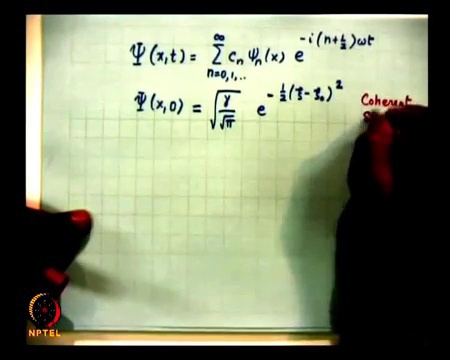 Ψ(x,t) = ∑_{n=0,1,..}^{∞} c_n ψ_n(x) e^{-i(n+½)ωt}
Ψ(x,0) = √(γ/√π) e^{-½(ξ-ξ₀)²}
Coherent
NPTEL